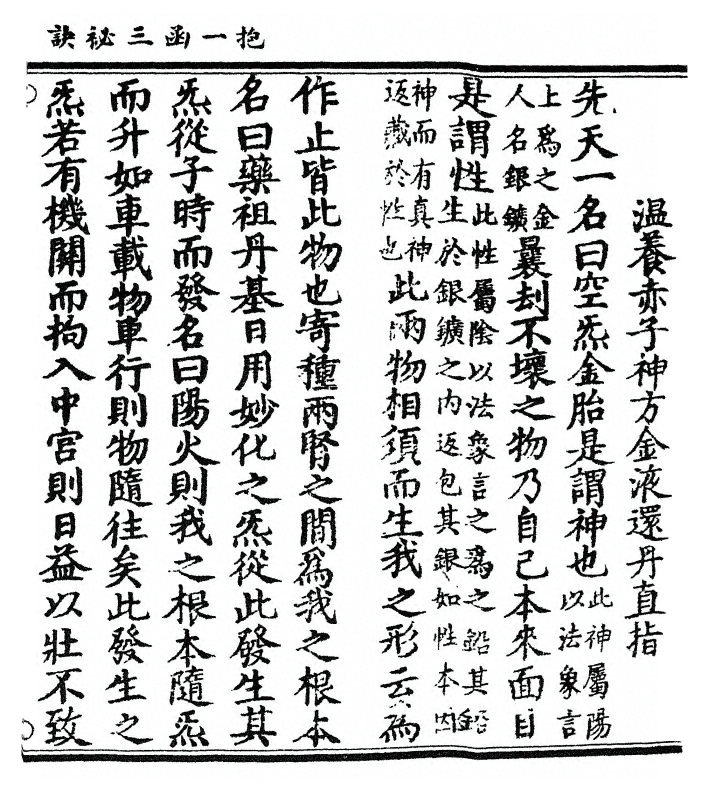 抱一函三祕訣
温養赤子神方金液還丹直指
先天一名曰空炁金胎是謂神也此神屬陽以法象言
上爲之金人名銀鑛曩刦不壞之物乃自己本來面目
是謂性此性屬陰以法象言之爲之鉛其鉛生於銀鑛之内返包其銀如性本因
神而有真神返藏於性也此兩物相須而生我之形云爲
作止皆此物也寄種兩腎之間爲我之根本
名曰藥祖丹基日用妙化之炁從此發生其
炁從子時而發名曰陽火則我之根本隨炁
而升如車載物車行則物隨往矣此發生之
炁若有機關而拘入中宮則日益以壯不致